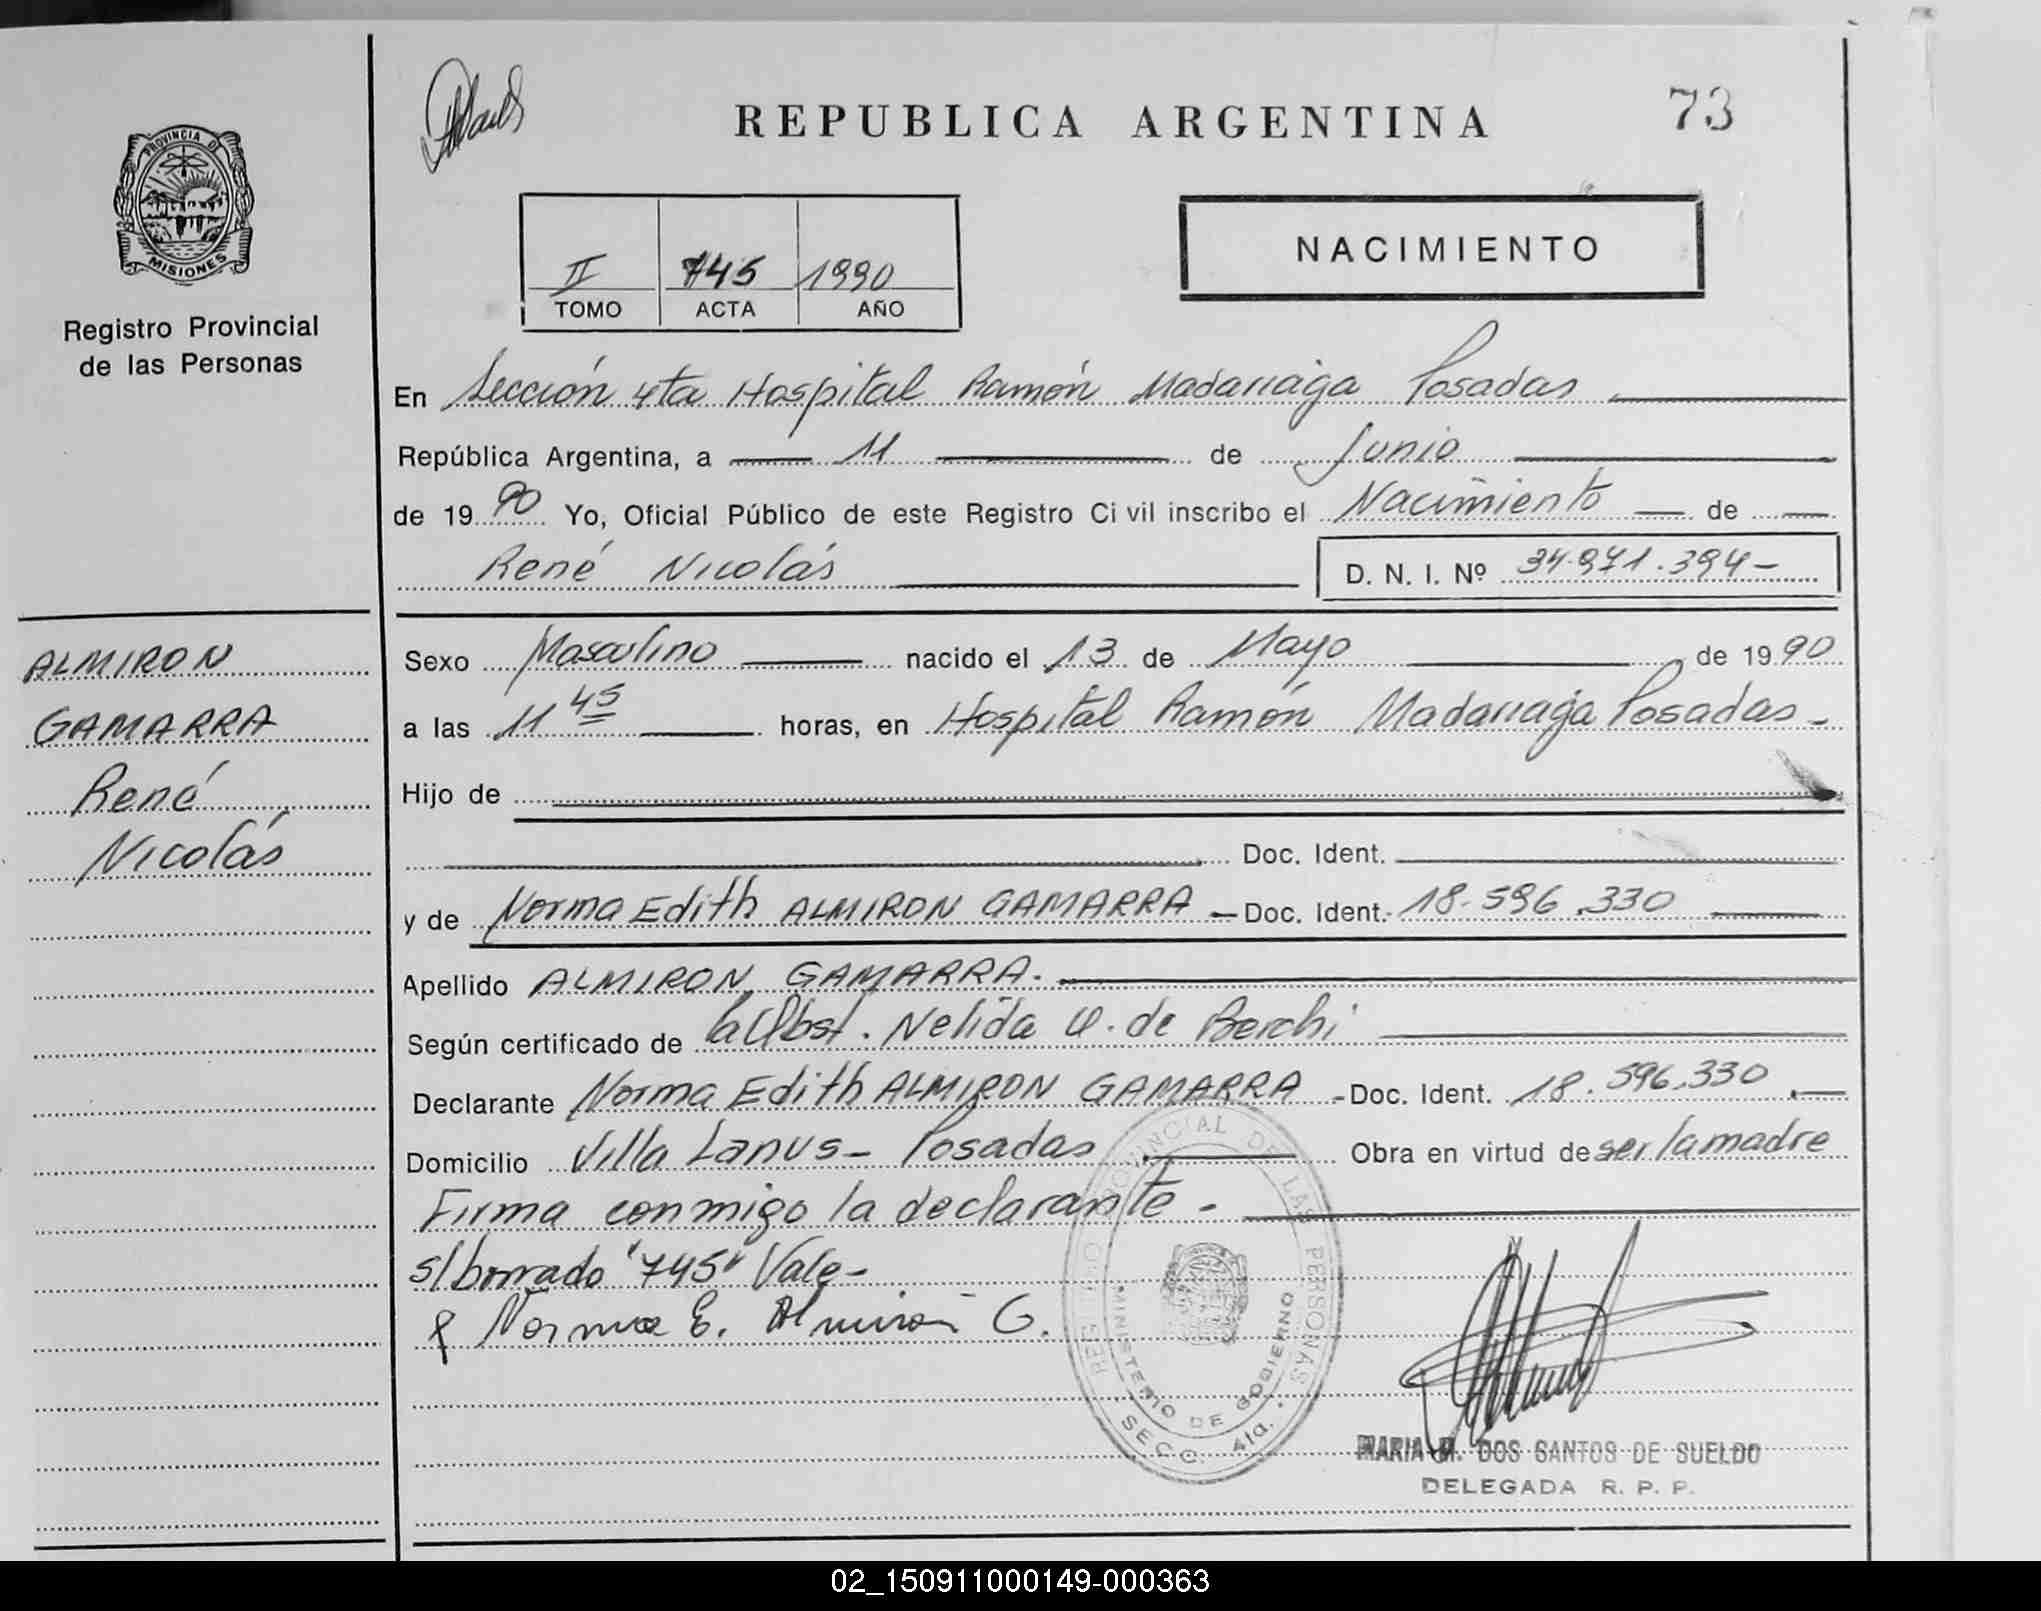 REPUBLICA ARGENTINA
73
PROVINCIA DE
MISIONES
Registro Provincial
de las Personas
II 745 1990
TOMO ACTA AÑO
NACIMIENTO
En Sección 4ta Hospital Ramón Madariaga Posadas
República Argentina, a 11 de Junio
de 1990 Yo, Oficial Público de este Registro Civil inscribo el Nacimiento de
René Nicolás D. N. I. Nº 34.971.394-
ALMIRON
GAMARRA
René
Nicolás
Sexo Masculino nacido el 13 de Mayo de 1990
a las 11 45 horas, en Hospital Ramón Madariaga Posadas-
Hijo de
Doc. Ident.
y de Norma Edith ALMIRON GAMARRA - Doc. Ident. 18.596.330
Apellido ALMIRON GAMARRA.
Según certificado de la Obst. Nelida de Berchi
Declarante Norma Edith ALMIRON GAMARRA - Doc. Ident. 18.596.330
Domicilio Villa Lanus - Posadas Obra en virtud de ser la madre
Firma conmigo la declarante -
s/borrado "745" Vale-
Norma E. Almirón G.
REGISTRO PROVINCIAL DE LAS PERSONAS
MINISTERIO DE GOBIERNO
SECC. 4ta.
MARIA DOS SANTOS DE SUELDO
DELEGADA R. P. P.
02_150911000149-000363